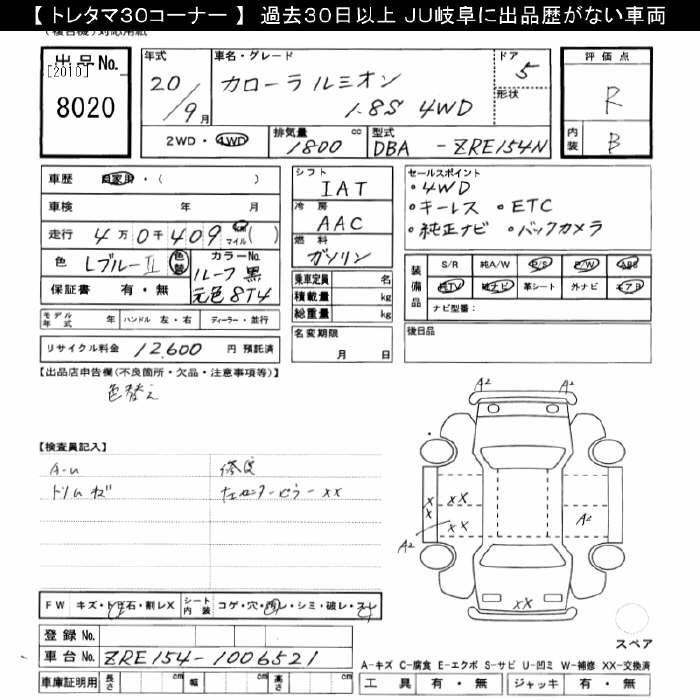 【 トレタマ30コーナー 】 過去30日以上 JU岐阜に出品歴がない車両
出品No.
[2010]
8020
年式 車名・グレード ドア
20/9月 カローラルミオン 5
1.8S 4WD 形状
2WD・4WD 排気量 1800 cc 型式 DBA - ZRE154N
評価点
R
内装 B
車歴 自家用・( )
車検 年 月
走行 4万0千409 km マイル ( )
色 Lブルーⅱ 色替 カラーNo. ルーフ黒
保証書 有・無 元色8T4
シフト IAT
冷房 AAC
燃料 ガソリン
乗車定員 名
積載量 kg
総重量 kg
セールスポイント
・4WD
・キーレス ・ETC
・純正ナビ ・バックカメラ
装備品 S/R 純A/W P/S P/W ABS
純TV 純ナビ 革シート 外ナビ エアB
ナビ型番:
モデル年式 年 ハンドル 左・右 ディーラー・並行
名変期限 月 日
後日品
リサイクル料金 12,600 円 預託済
【出品店申告欄(不良箇所・欠品・注意事項等)】
色替え
【検査員記入】
A-U 修復
左センターピラーXX
A2 A2
XX XX
X XX A2
A2
XX
スペア
FW キズ・トビ石・割レX シート内装 コゲ・穴・汚レ・シミ・破レ・スレ
登録No.
車台No. ZRE154-1006521
車庫証明用 長さ cm 幅 cm 高さ cm
A-キズ C-腐食 E-エクボ S-サビ U-凹ミ W-補修 XX-交換済
工具 有・無 ジャッキ 有・無